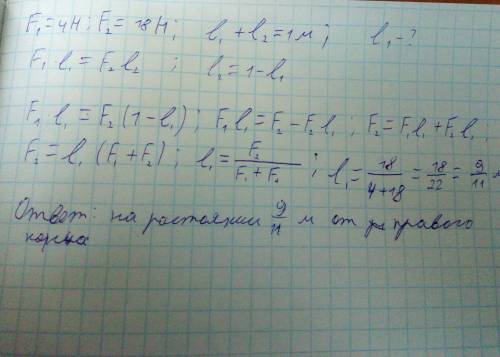 F₁=4H; F₂=18H; l₁+l₂=1м; l₁-?
F₁l₁=F₂l₂; l₂=1-l₁
F₁l₁=F₂(1-l₁); F₁l₁=F₂-F₂l₁; F₂=F₁l₁+F₂l₁
F₂=l₁(F₁+F₂); l₁=F₂/(F₁+F₂); l₁=18/(4+18)=18/22=9/11 м
Ответ: на растоянии 9/11 м от правого
конца